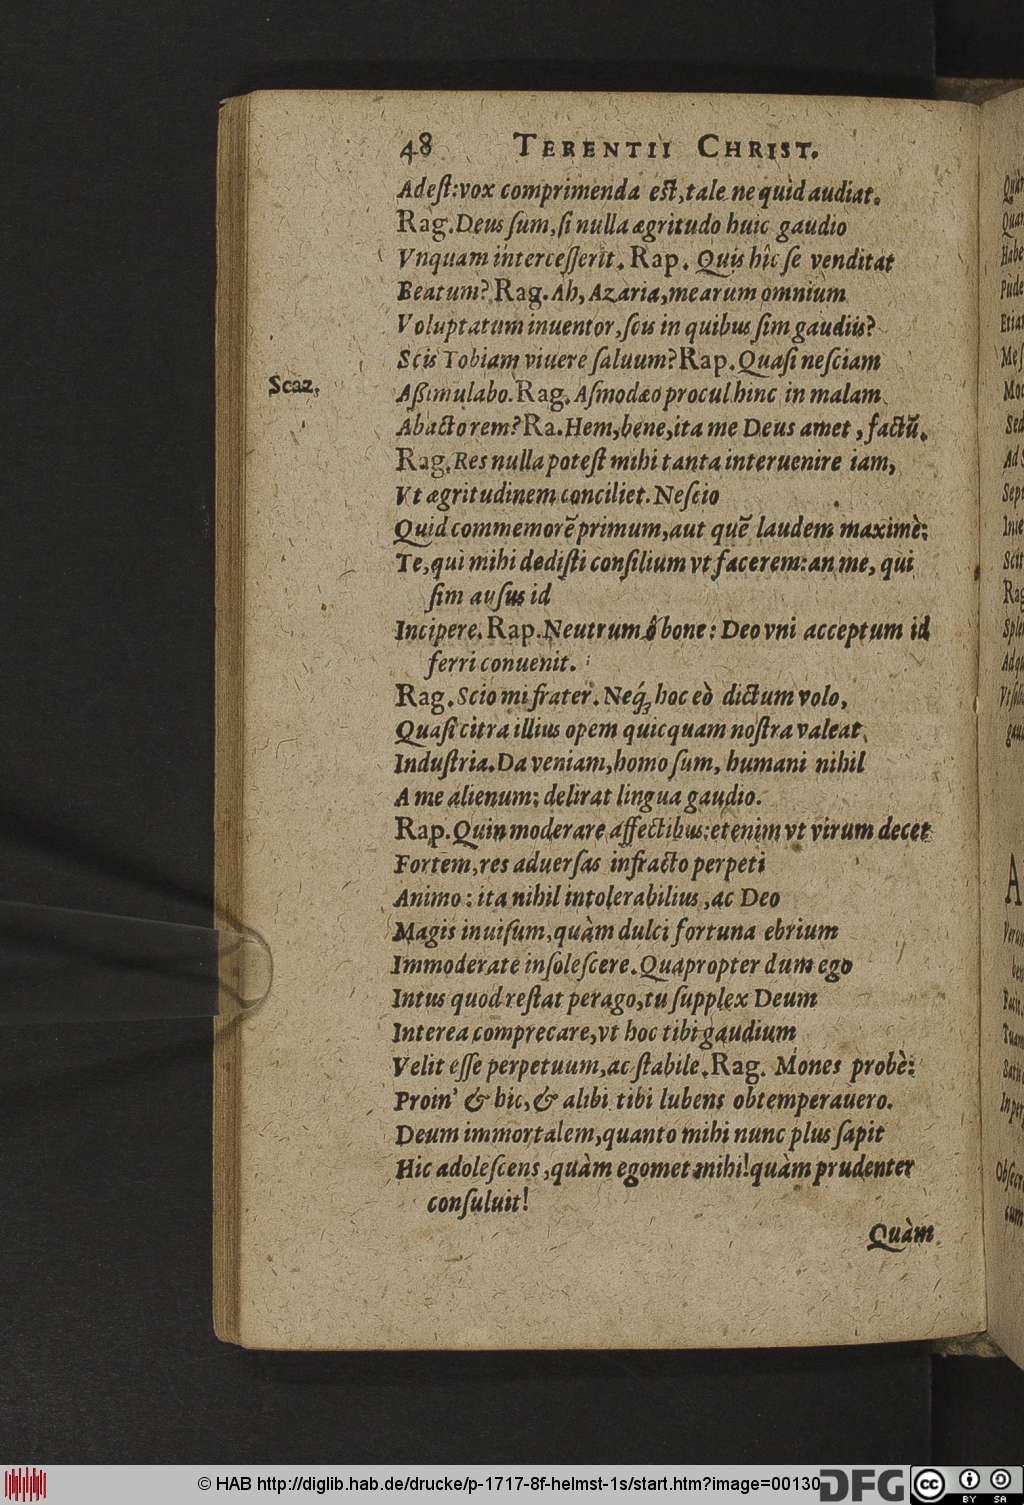 48 TERENTII CHRIST.
Adeſt: vox comprimenda eſt, tale ne quid audiat.
Rag. Deus ſum, ſi nulla ægritudo huic gaudio
Vnquam interceſſerit. Rap. Quis hîc ſe venditat
Beatum? Rag. Ah, Azaria, mearum omnium
Voluptatum inuentor, ſcis in quibus ſim gaudiis?
Scis Tobiam viuere ſaluum? Rap. Quaſi neſciam
Scaz.
Aßimulabo. Rag. Aſmodæo procul hinc in malam
Abacto rem? Ra. Hem, bene, ita me Deus amet, factū.
Rag. Res nulla poteſt mihi tanta interuenire iam,
Vt ægritudinem conciliet. Neſcio
Quid commemorē primum, aut quē laudem maximè:
Te, qui mihi dediſti conſilium vt facerem: an me, qui
ſim auſus id
Incipere. Rap. Neutrum ô bone: Deo vni acceptum id
ferri conuenit.
Rag. Scio mi frater. Neq́ꝫ hoc eò dictum volo,
Quaſi citra illius opem quicquam noſtra valeat
Induſtria. Da veniam, homo ſum, humani nihil
A me alienum; delirat lingua gaudio.
Rap. Quin moderare affectibus: etenim vt virum decet
Fortem, res aduerſas infracto perpeti
Animo: ita nihil intolerabilius, ac Deo
Magis inuiſum, quàm dulci fortuna ebrium
Immoderate inſoleſcere. Quapropter dum ego
Intus quod reſtat perago, tu ſupplex Deum
Interea comprecare, vt hoc tibi gaudium
Velit eſſe perpetuum, ac ſtabile. Rag. Mones probè:
Proin' & hic, & alibi tibi lubens obtemperauero.
Deum immortalem, quanto mihi nunc plus ſapit
Hic adoleſcens, quàm egomet mihi! quàm prudenter
conſuluit!
Quàm
© HAB http://diglib.hab.de/drucke/p-1717-8f-helmst-1s/start.htm?image=00130
DFG
cc BY SA